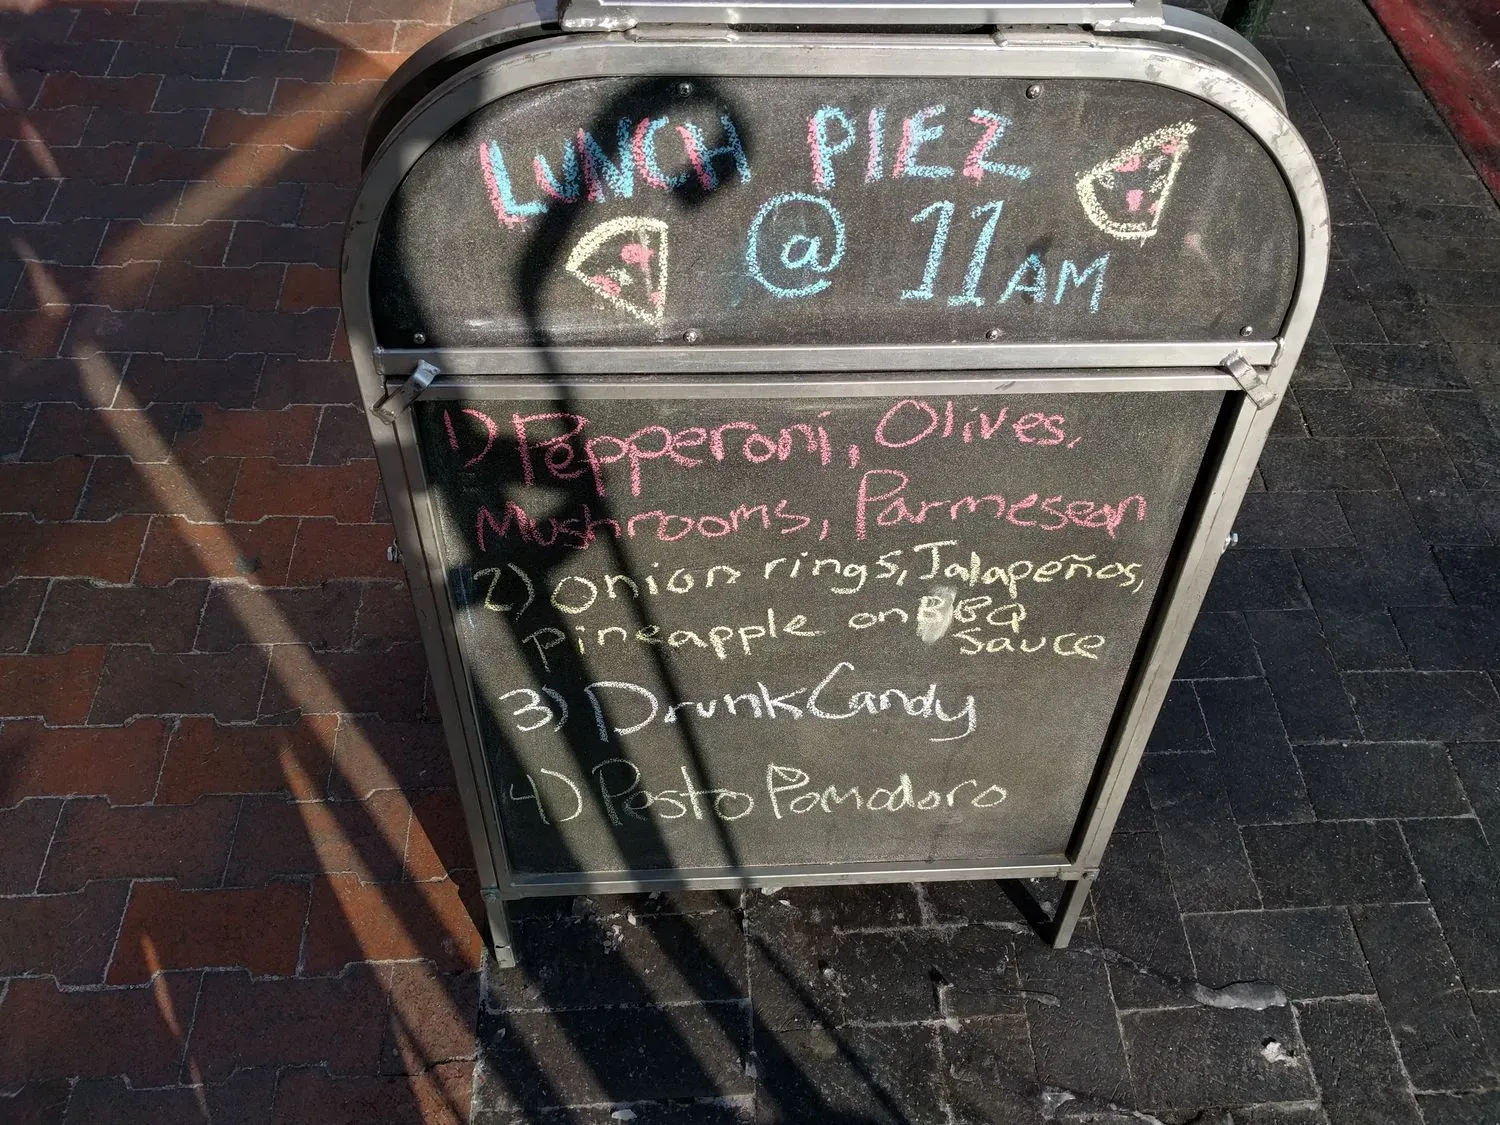 LUNCH PIEZ
@ 11AM
1) Pepperoni, Olives,
Mushrooms, Parmesean
2) Onion rings, Jalapeños,
pineapple on BBQ
Sauce
3) Drunk Candy
4) Pesto Pomodoro